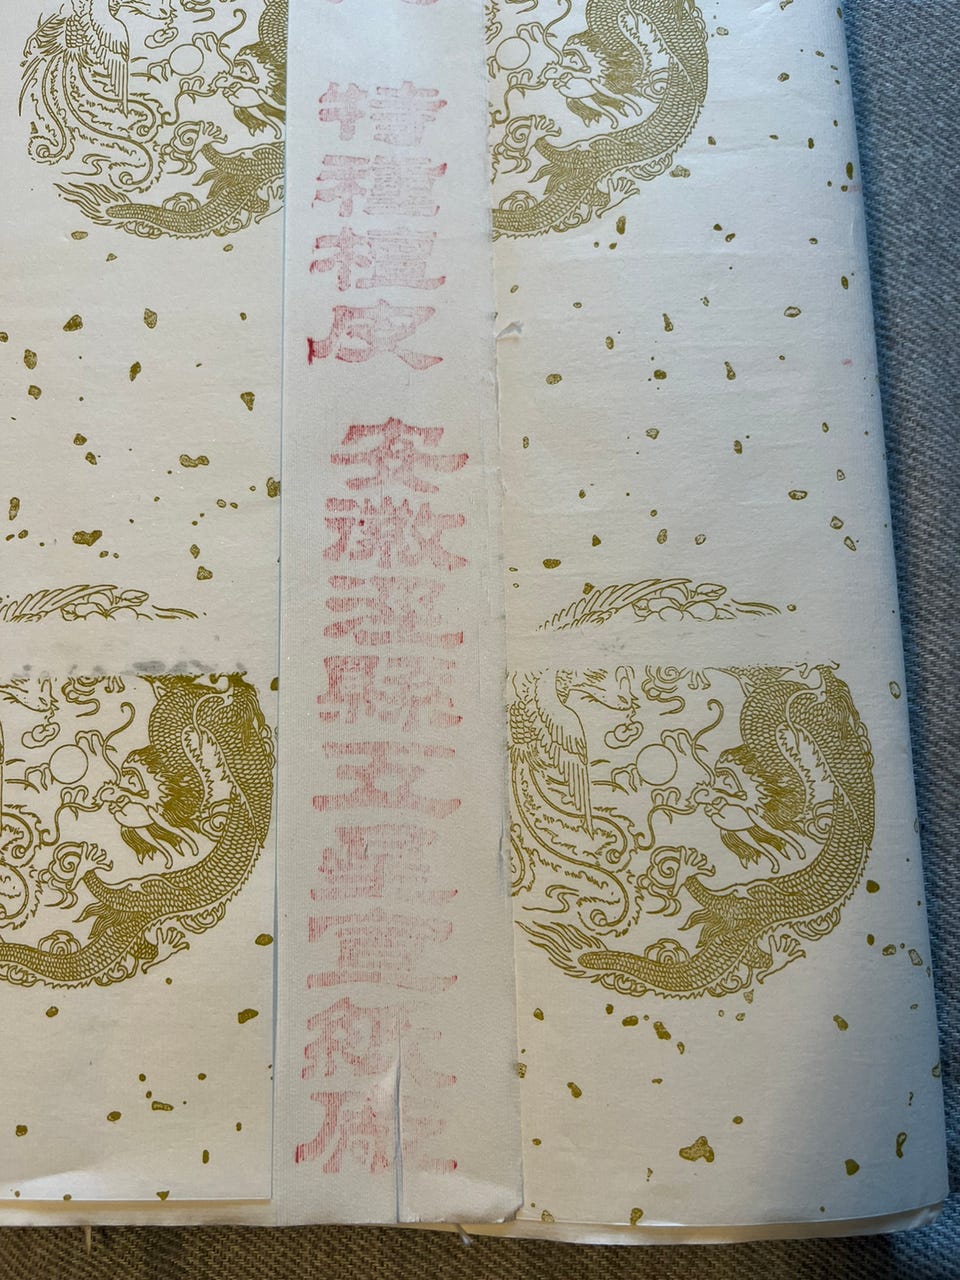 特種檀皮
安徽涇縣五星宣紙廠